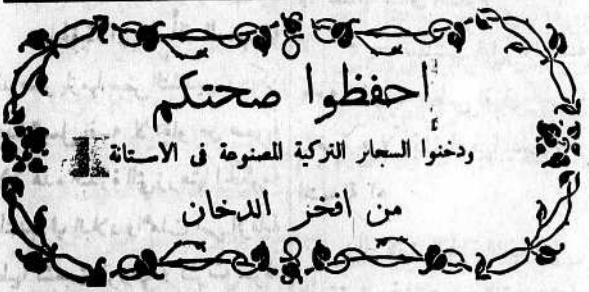 احفظوا صحتكم
ودخنوا السجائر التركية المصنوعة فى الاستانة
من افخر الدخان